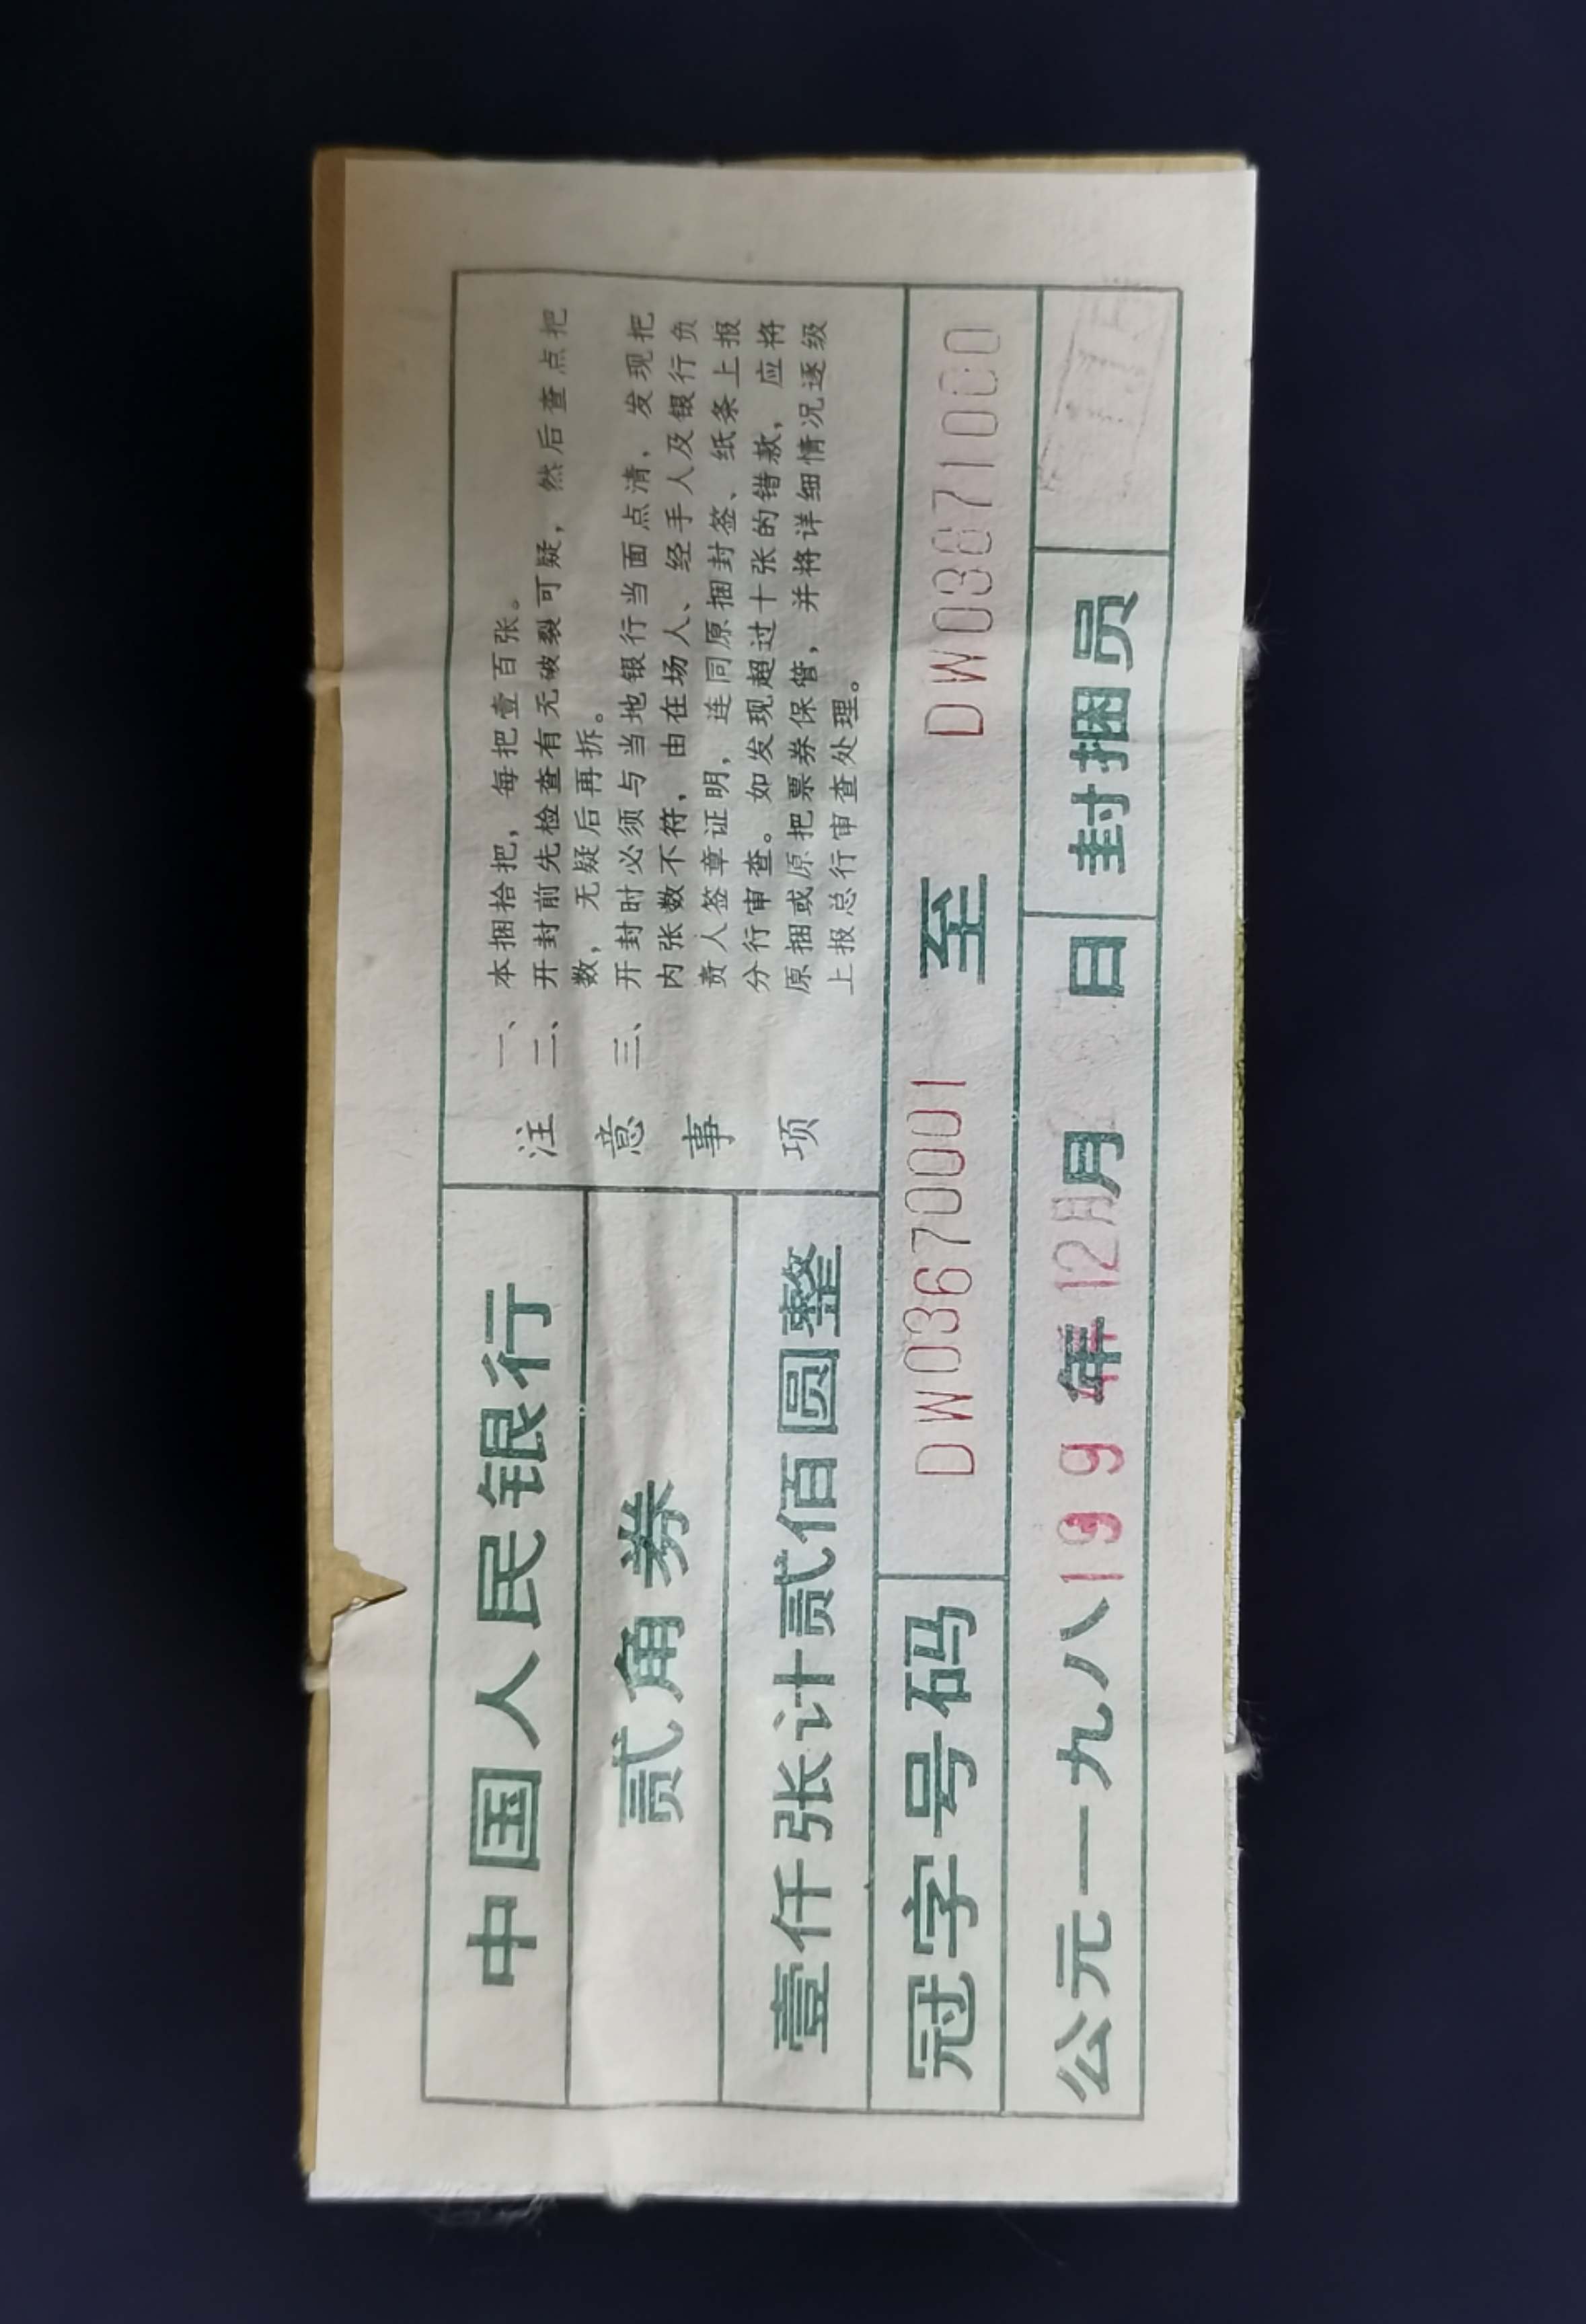 中国人民银行
贰角券
壹仟张计贰佰圆整
注意事项
一、本捆拾把，每把壹百张。
二、开封前先检查有无破裂可疑，然后查点把
数，无疑后再拆。
三、开封时必须与当地银行当面点清，发现把
内张数不符，由在场人、经手人及银行负
责人签章证明，连同原捆封签、纸条上报
分行审查。如发现超过十张的错款，应将
原捆或原把票券保管，并将详细情况逐级
上报总行审查处理。
冠字号码 DW03670001 至 DW03671000
公元一九八199年12月月 日 封捆员